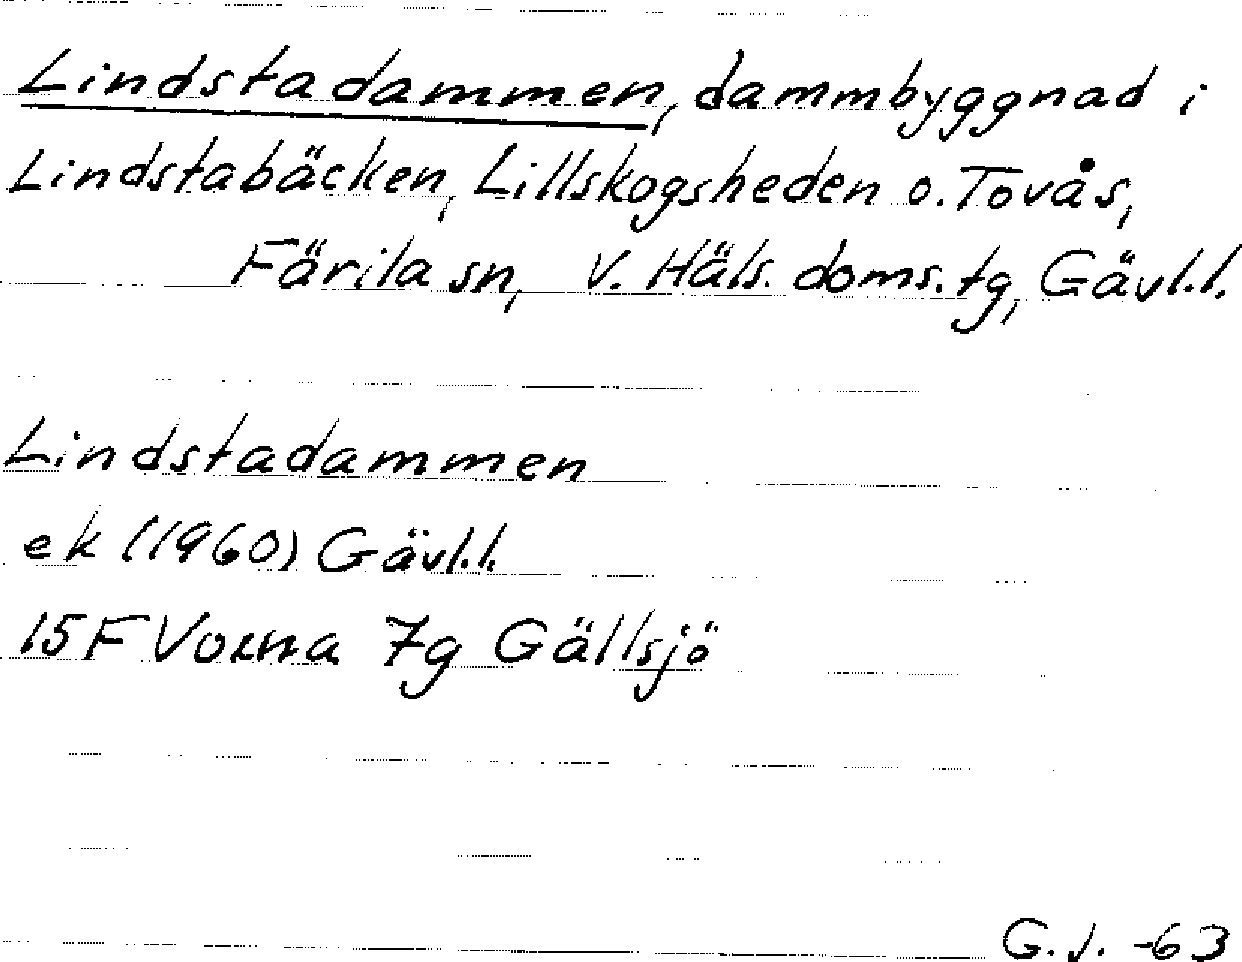 Lindstadammen, dammbyggnad i
Lindstabäcken, Lillskogsheden o. Tovås,
Färila sn, V. Häls. doms. tg, Gävl.l.
Lindstadammen
ek (1960) Gävl.l.
15F Voxna 7g Gällsjö
G.J. -63